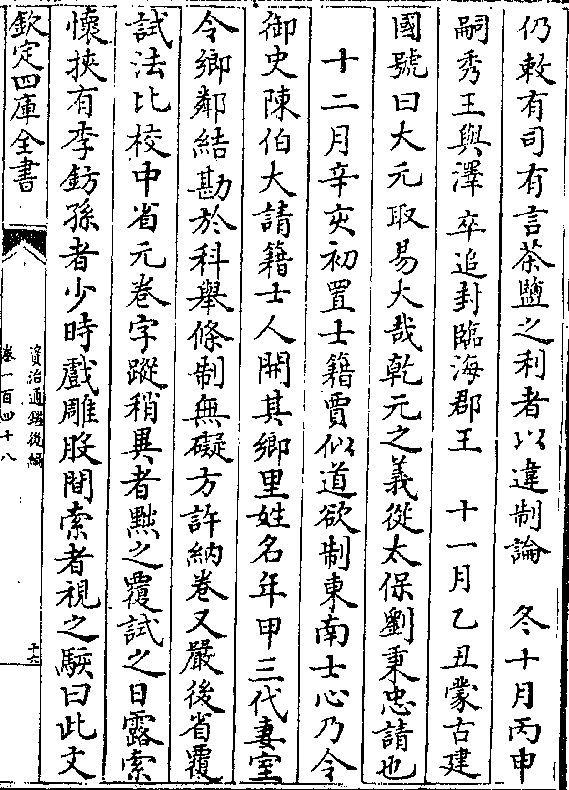 仍敕有司有言茶鹽之利者以違制論　冬十月丙申
嗣秀王與澤卒追封臨海郡王　十一月乙丑蒙古建
國號曰大元取易大哉乾元之義從太保劉秉忠請也
十二月辛亥初置士籍賈似道欲制東南士心乃令
御史陳伯大請籍士人開其鄉里姓名年甲三代妻室
令鄉鄰結勘於科舉條制無礙方許納卷又嚴後省覆
試法比校中省元卷字蹤稍異者黜之覆試之日露索
懷挾有李鈁孫者少時戲雕股間索者視之駭曰此文
欽定四庫全書
資治通鑑後編
卷一百四十八
十六